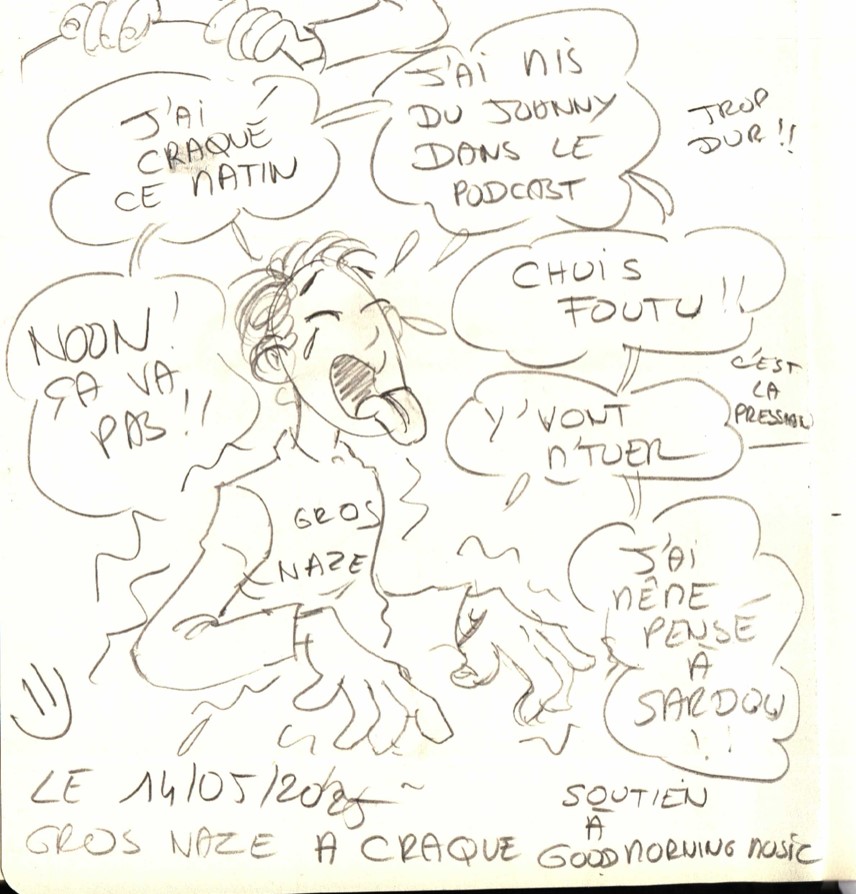 J'AI
CRAQUÉ
CE MATIN
J'AI MIS
DU JOHNNY
DANS LE
PODCAST
TROP
DUR !!
NOON !
ÇA VA
PAS !!
CHUIS
FOUTU !!
C'EST
LA
PRESSION
Y'VONT
M'TUER
GROS
NAZE
J'AI
MÊME
PENSÉ
À
SARDOU
!!
LE 14/05/
GROS NAZE A CRAQUE
SOUTIEN
À
GOOD MORNING MUSIC